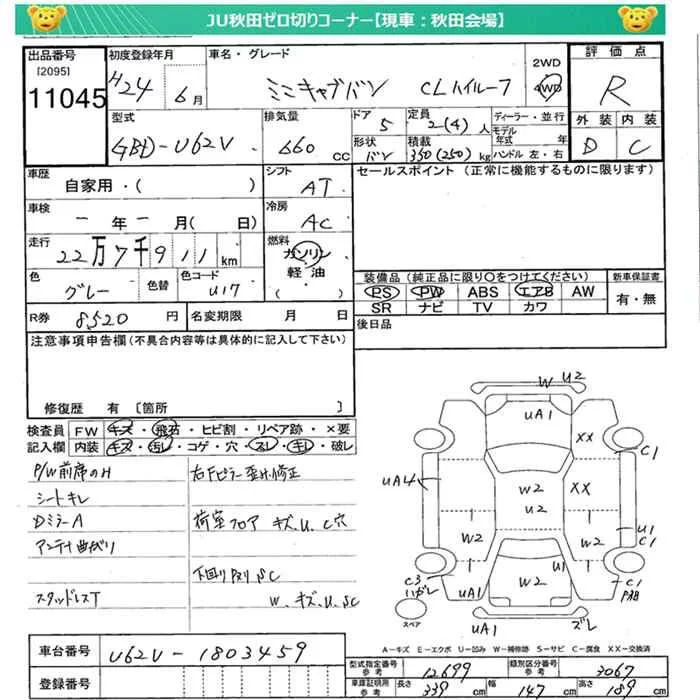 JU秋田ゼロ切りコーナー【現車：秋田会場】
出品番号
[2095]
11045
初度登録年月
H24 6月
車名・グレード
ミニキャブバン CLハイルーフ
2WD
4WD
評価点
R
外装 内装
D C
型式
GBD-U62V
排気量
660 cc
ドア
5
形状
バン
定員
2(4)人
積載
350(250)kg
ディーラー・並行
モデル年式 年
ハンドル 左・右
車歴
自家用・( )
シフト
AT
セールスポイント (正常に機能するものに限ります)
車検
ー年ー月(ー日)
冷房
AC
走行
22万7千911km
燃料
ガソリン
軽油
( )
色
グレー
色替
色コード
U17
装備品 (純正品に限り〇をつけてください)
PS PW ABS エアB AW
SR ナビ TV カワ
新車保証書
有・無
R券 8520円
名変期限 月 日
後日品
注意事項申告欄 (不具合内容等は具体的に記入して下さい)
修復歴 有 [箇所 ]
検査員 FW キズ・飛石・ヒビ割・リペア跡・×要
記入欄 内装 キズ・汚レ・コゲ・穴・スレ・キレ・破レ
P/W前席のH
シートキレ
DミラーA
アンテナ曲がり
スタッドレスT
右Fピラー歪み修正
荷室フロア キズ.U.C穴
下回り反り SC
W.キズ.U.SC
W U2
UA1
XX
C1
UA4
W2
XX
U2
W2
W2
U1
C1
C3
ハガレ
UA1
W2
U1
C1
スペア
UA1
ズレ
A－キズ E－エクボ U－凹み W－補修跡 S－サビ C－腐食 XX－交換済
車台番号
U62V-1803459
登録番号
型式指定番号
参考
12699
類別区分番号
参考
3067
車庫証明用
参考
長さ 339
幅 147
高さ 189
cm